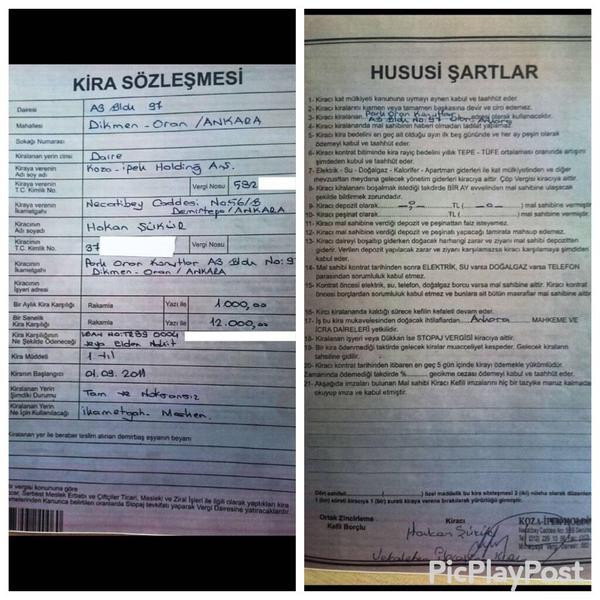 KİRA SÖZLEŞMESİ
Dairesi A3 Blok 97
Mahallesi Dikmen - Oran / ANKARA
Sokağı Numarası
Kiralanan yerin cinsi Daire
Kiraya verenin Adı soy adı Koza - ipek Holding A.Ş.
Kiraya verenin T.C. Kimlik No. Vergi Nosu 582
Kiraya verenin İkametgahı Necatibey Caddesi No:56/B
Demirtepe / ANKARA
Kiracının Adı soyadı Hakan ŞÜKÜR
Kiracının T.C. Kimlik No. 37 Vergi Nosu
Kiracının İkametgahı Park Oran Konutları A3 Blok No: 97
Dikmen - Oran / ANKARA
Kiracının İşyeri adresi
Bir Aylık Kira Karşılığı Rakamla Yazı ile 1000,00
Bir Senelik Kira Karşılığı Rakamla Yazı ile 12.000,00
Kira Karşılığının Ne Şekilde Ödeneceği
veya Elden Nakit
Kira Müddeti 1 - Yıl
Kiranın Başlangıcı 01.09.2011
Kiralanan Yerin Şimdiki Durumu Tam ve Noksansız
Kiralanan Yerin Ne İçin Kullanılacağı İkametgah - Mesken
Kiralanan yer ile beraber teslim alınan demirbaş eşyanın beyanı
vergisi konununa göre
Serbest Meslek Erbabı ve Çiftçiler Ticari, Mesleki ve Zirai İşleri ile ilgili olarak yaptıkları kira
Kanunca belirtilen oranlarda Stopaj tevkifatı yaparak Vergi Dairesine yatıracaklardır.
HUSUSİ ŞARTLAR
1- Kiracı kat mülkiyeti kanununa uymayı aynen kabul ve taahhüt eder.
2- Kiracı kiralananı kısmen veya tamamen başkasına devir ve ciro edemez.
3- Kiracı kiralananı Park Oran Konutları A3 Blok No: 97 Oran Ankara adresi olarak kullanılacaktır.
4- Kiracı kiralananda mal sahibinin haberi olmadan tadilat yapamaz.
5- Kiracı kira bedelini en geç ait olduğu ayın ilk beş gününde ve her ay peşin olarak
ödemeyi kabul ve taahhüt eder.
6- Kira kontratı bitiminde kira rayiç bedelini yıllık TEFE - TÜFE ortalaması oranında artışını
şimdeden kabul ve taahhüt eder.
7- Elektrik - Su - Doğalgaz - Kalorifer - Apartman giderleri ile kat mülkiyetinden ve diğer
mevzuattan meydana gelecek yönetim giderleri kiracıya aittir. Çöp Vergisi Kiracıya aittir.
8- Kiracı kiralananı boşalmak istediği takdirde BİR AY evvelinden mal sahibine ulaşacak
şekilde bildirmek zorundadır.
9- Kiracı depozit olarak TL ( ) mal sahibine vermiştir.
10- Kiracı peşinat olarak TL ( ) mal sahibine vermiştir.
11- Kiracı mal sahibine verdiği depozit ve peşinattan faiz isteyemez.
12- Kiracı mal sahibine verdiği depozit ve peşinatı yapacağı tamirata mahsup edemez.
13- Kiracı daireyi boşaltıp giderken doğacak herhangi zarar ve ziyanı mal sahibi depozitten
giderir. Verilen depozit yapılacak zarar ve ziyanı karşılamazsa kiracı karşılamaya şimdiden
kabul eder.
14- Mal sahibi kontrat tarihinden sonra ELEKTRİK, SU varsa DOĞALGAZ varsa TELEFON
parasından sorumluluk kabul etmez.
15- Kontrat öncesi elektrik, su, telefon, doğalgaz borcu varsa mal sahibine aittir. Kiracı kontrat
önesi borçlardan sorumluluk kabul etmez ve bunlara sit bütün masraflar mal sahibine aittir.
16- Kiracı kiralananda kaldığı sürece kefilin kefaleti devam eder.
17- İş bu kira mukavelesinden doğacak ihtilaflardan Ankara MAHKEME VE
İCRA DAİRELERİ yetkilidir.
18- Kiralanan işyeri veya Dükkan ise STOPAJ VERGİSİ kiracıya aittir.
19- Bir kira ödenmediği takdirde gelecek kiralar muacceliyet kespeder. Gelecek kiraların
tahsiline gidilir.
20- Kiracı kontrat tarihinden itibaren en geç 5 gün içinde kirayı ödemekle yükümlüdür.
Zamanında ödemediği takdirde % gecikme cezası ödemeyi kabul ve taahhüt eder.
21- Akşağıda imzaları bulunan Mal sahibi Kiracı Kefili imzalarını hiç bir tazyike maruz kalmadan
okuyup imza ve kabul etmiştir.
özel maddelik bu kira sözleşmesi 2 (iki) nüsha olarak düzenlenip
1 (bir) süreti kiracıya 1 (bir) süreti kiraya verene bırakılarak yürürlüğe girmiştir.
Ortak Zincirleme Kefil Borçlu
Kiracı
Hakan Şükür
KOZA-İPEK HOLDİNG
PicPlayPost